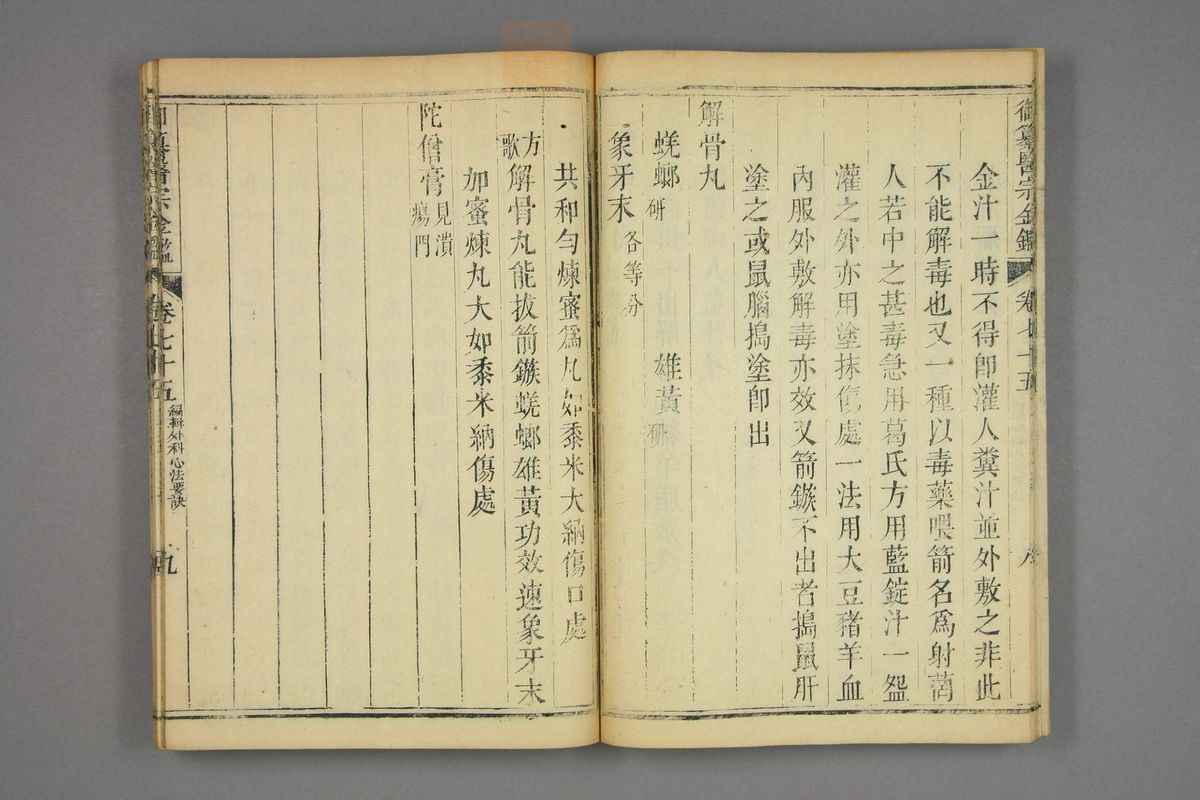 御纂醫宗金鑑 卷七十五 八
金汁一時不得即灌人糞汁並外敷之非此
不能解毒也又一種以毒藥喂箭名爲射菵
人若中之甚毒急用葛氏方用藍錠汁一盌
灌之外亦用塗抹傷處一法用大豆豬羊血
內服外敷解毒亦效又箭鏃不出者搗鼠肝
塗之或鼠腦搗塗卽出
解骨丸
蜣螂 研 雄黃 研
象牙末 各等分
共和勻煉蜜爲丸如黍米大納傷口處
方歌 解骨丸能拔箭鏃蜣螂雄黃功效速象牙末
加蜜煉丸大如黍米納傷處
陀僧膏 見潰瘍門
御纂醫宗金鑑 卷七十五 編輯外科心法要訣 九